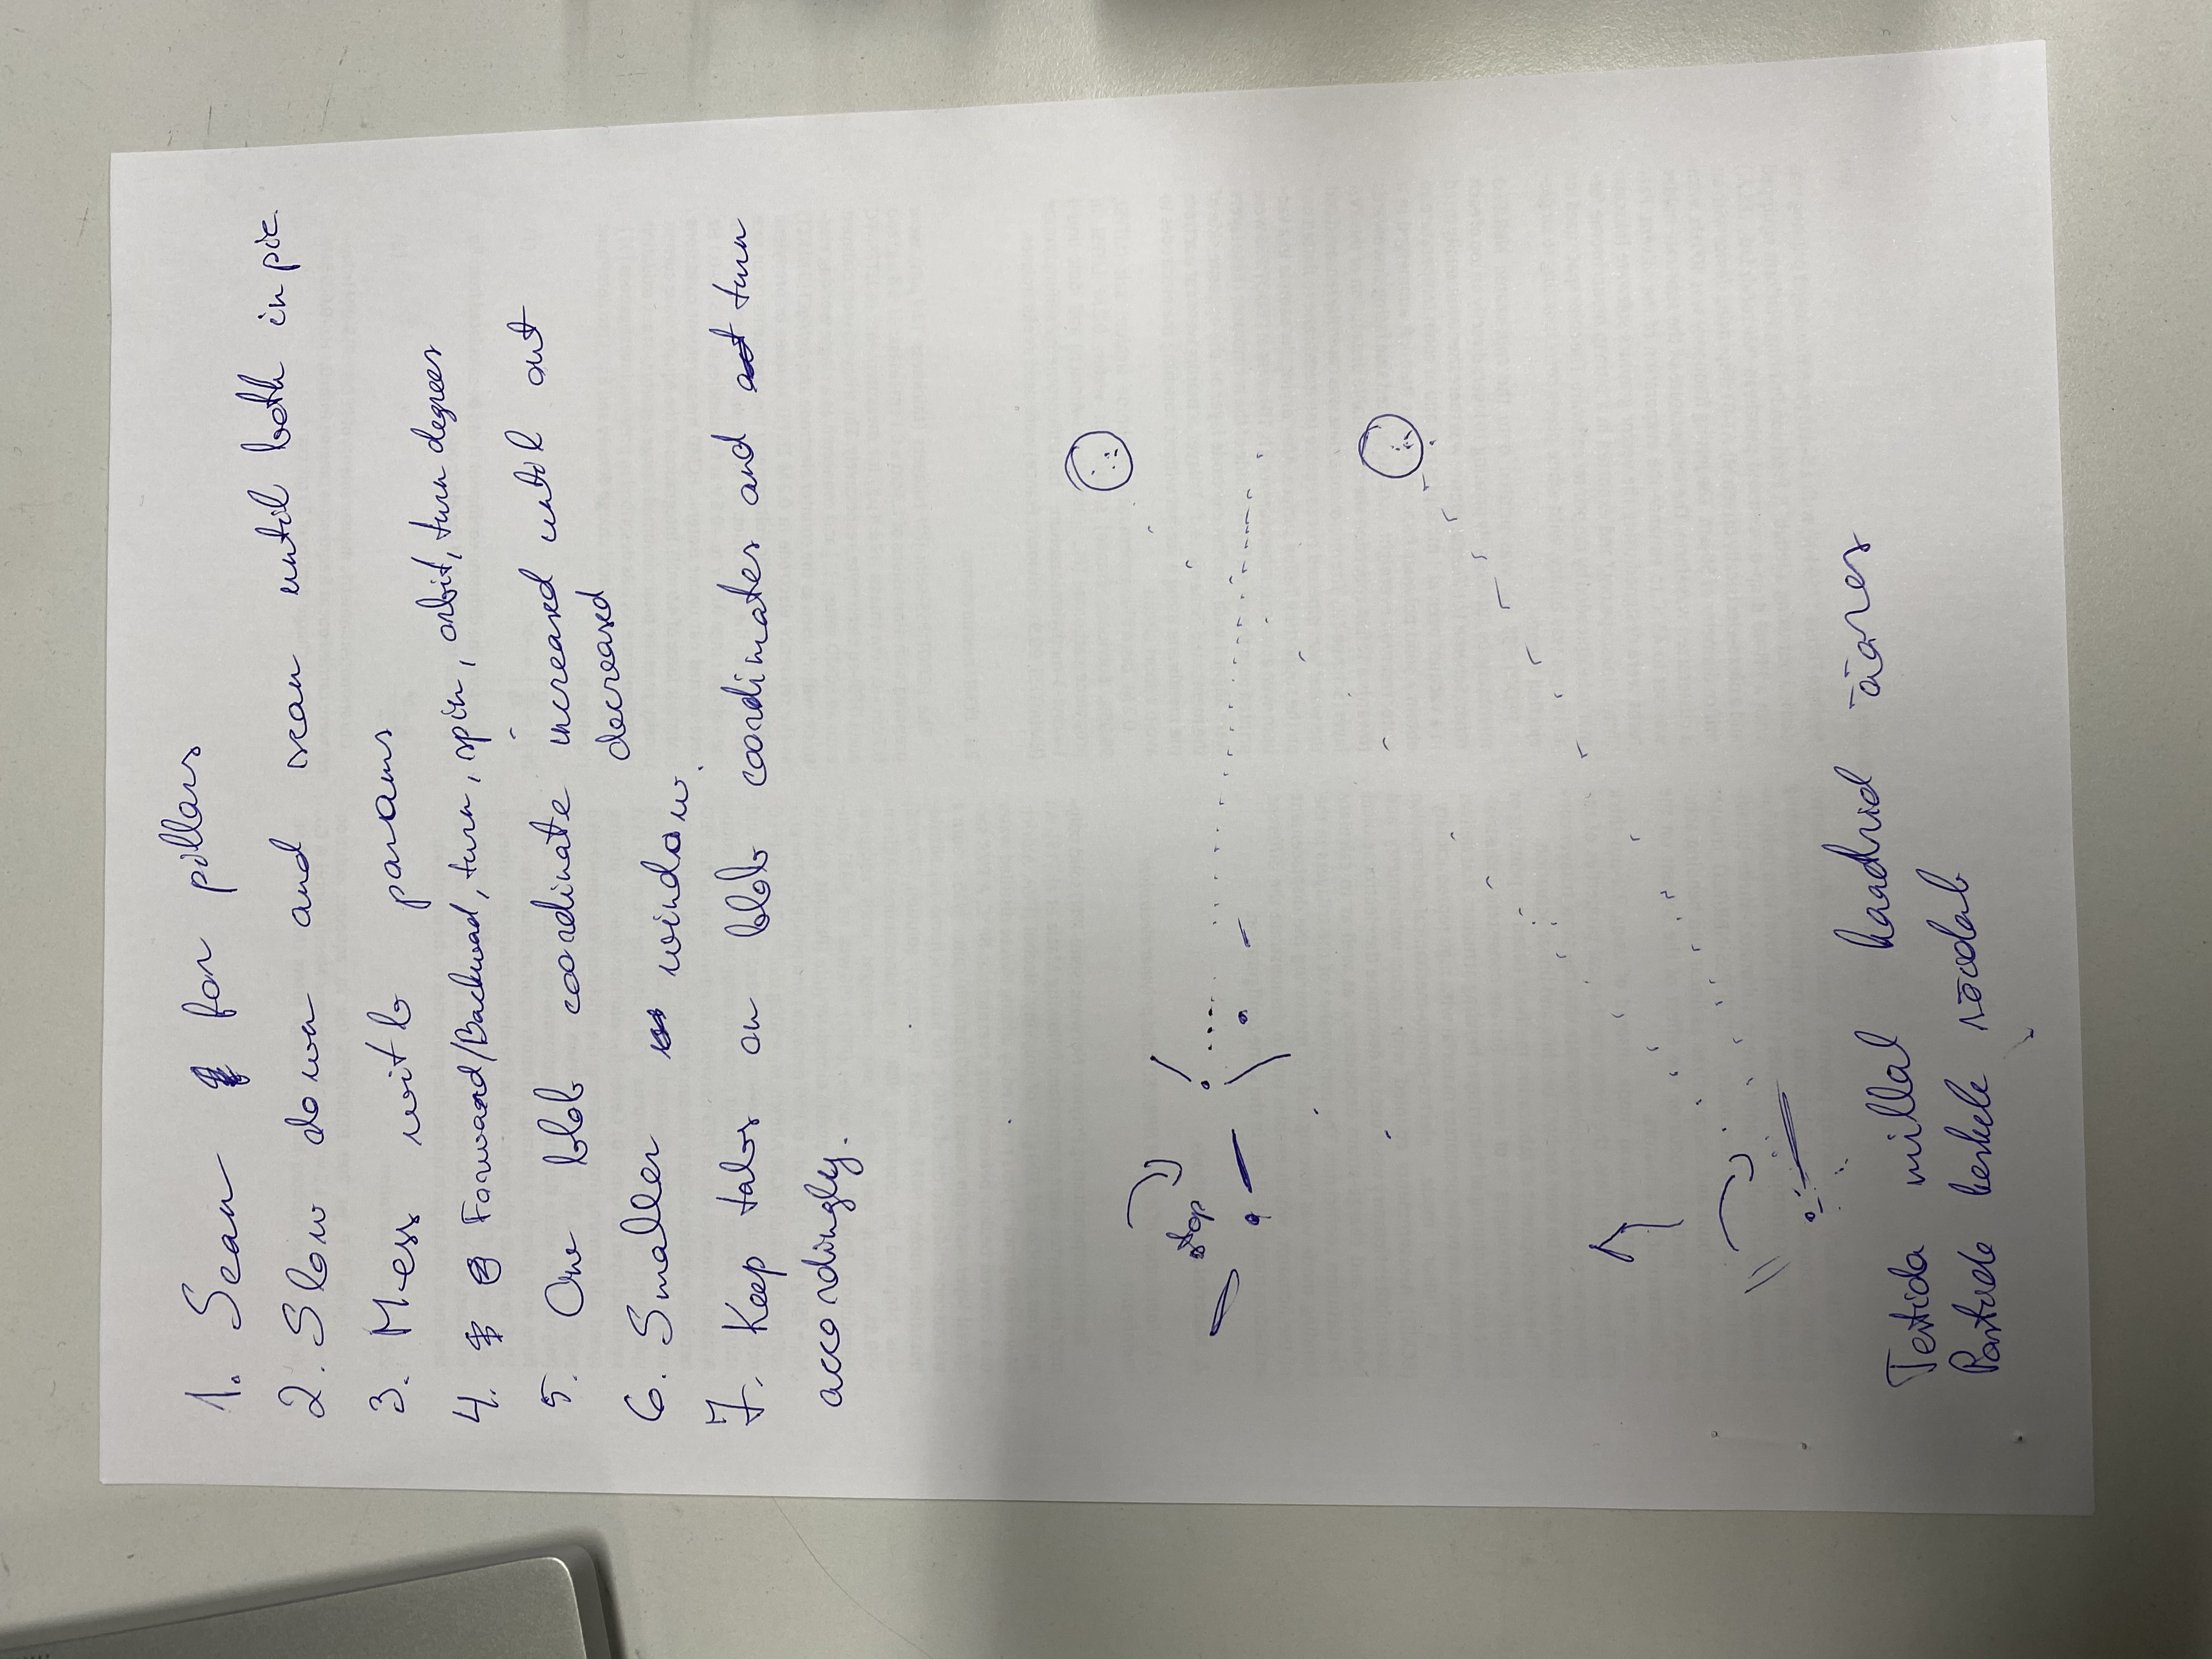 1. Scan for pillars
2. Slow down and scan until both in pic.
3. Mess with params
4. Forward/Backwad, turn, spin, orbit, turn degrees
5. One blob coordinate increased until out
decreased
6. Smaller window.
7. Keep tabs on blob coordinates and turn
accordingly.
stop
Testida millal kaadrid ääres
Postide keskele sõidab